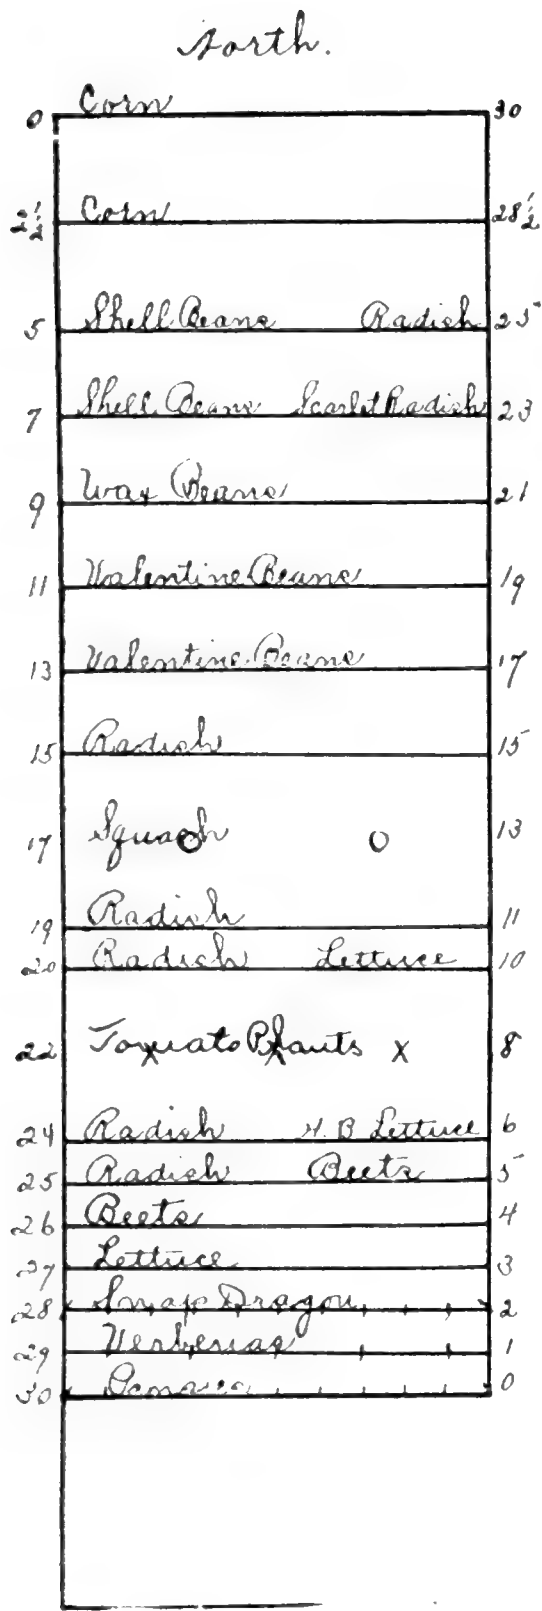 North.
0 Corn 30
2½ Corn 28½
5 Shell Beans Radish 25
7 Shell Beans Scarlet Radish 23
9 Wax Beans 21
11 Valentine Beans 19
13 Valentine Beans 17
15 Radish 15
17 Squash 13
19 Radish 11
20 Radish Lettuce 10
22 Tomato Plants x 8
24 Radish H. B Lettuce 6
25 Radish Beets 5
26 Beets 4
27 Lettuce 3
28 Snap Dragon 2
29 Verbenas 1
30 0